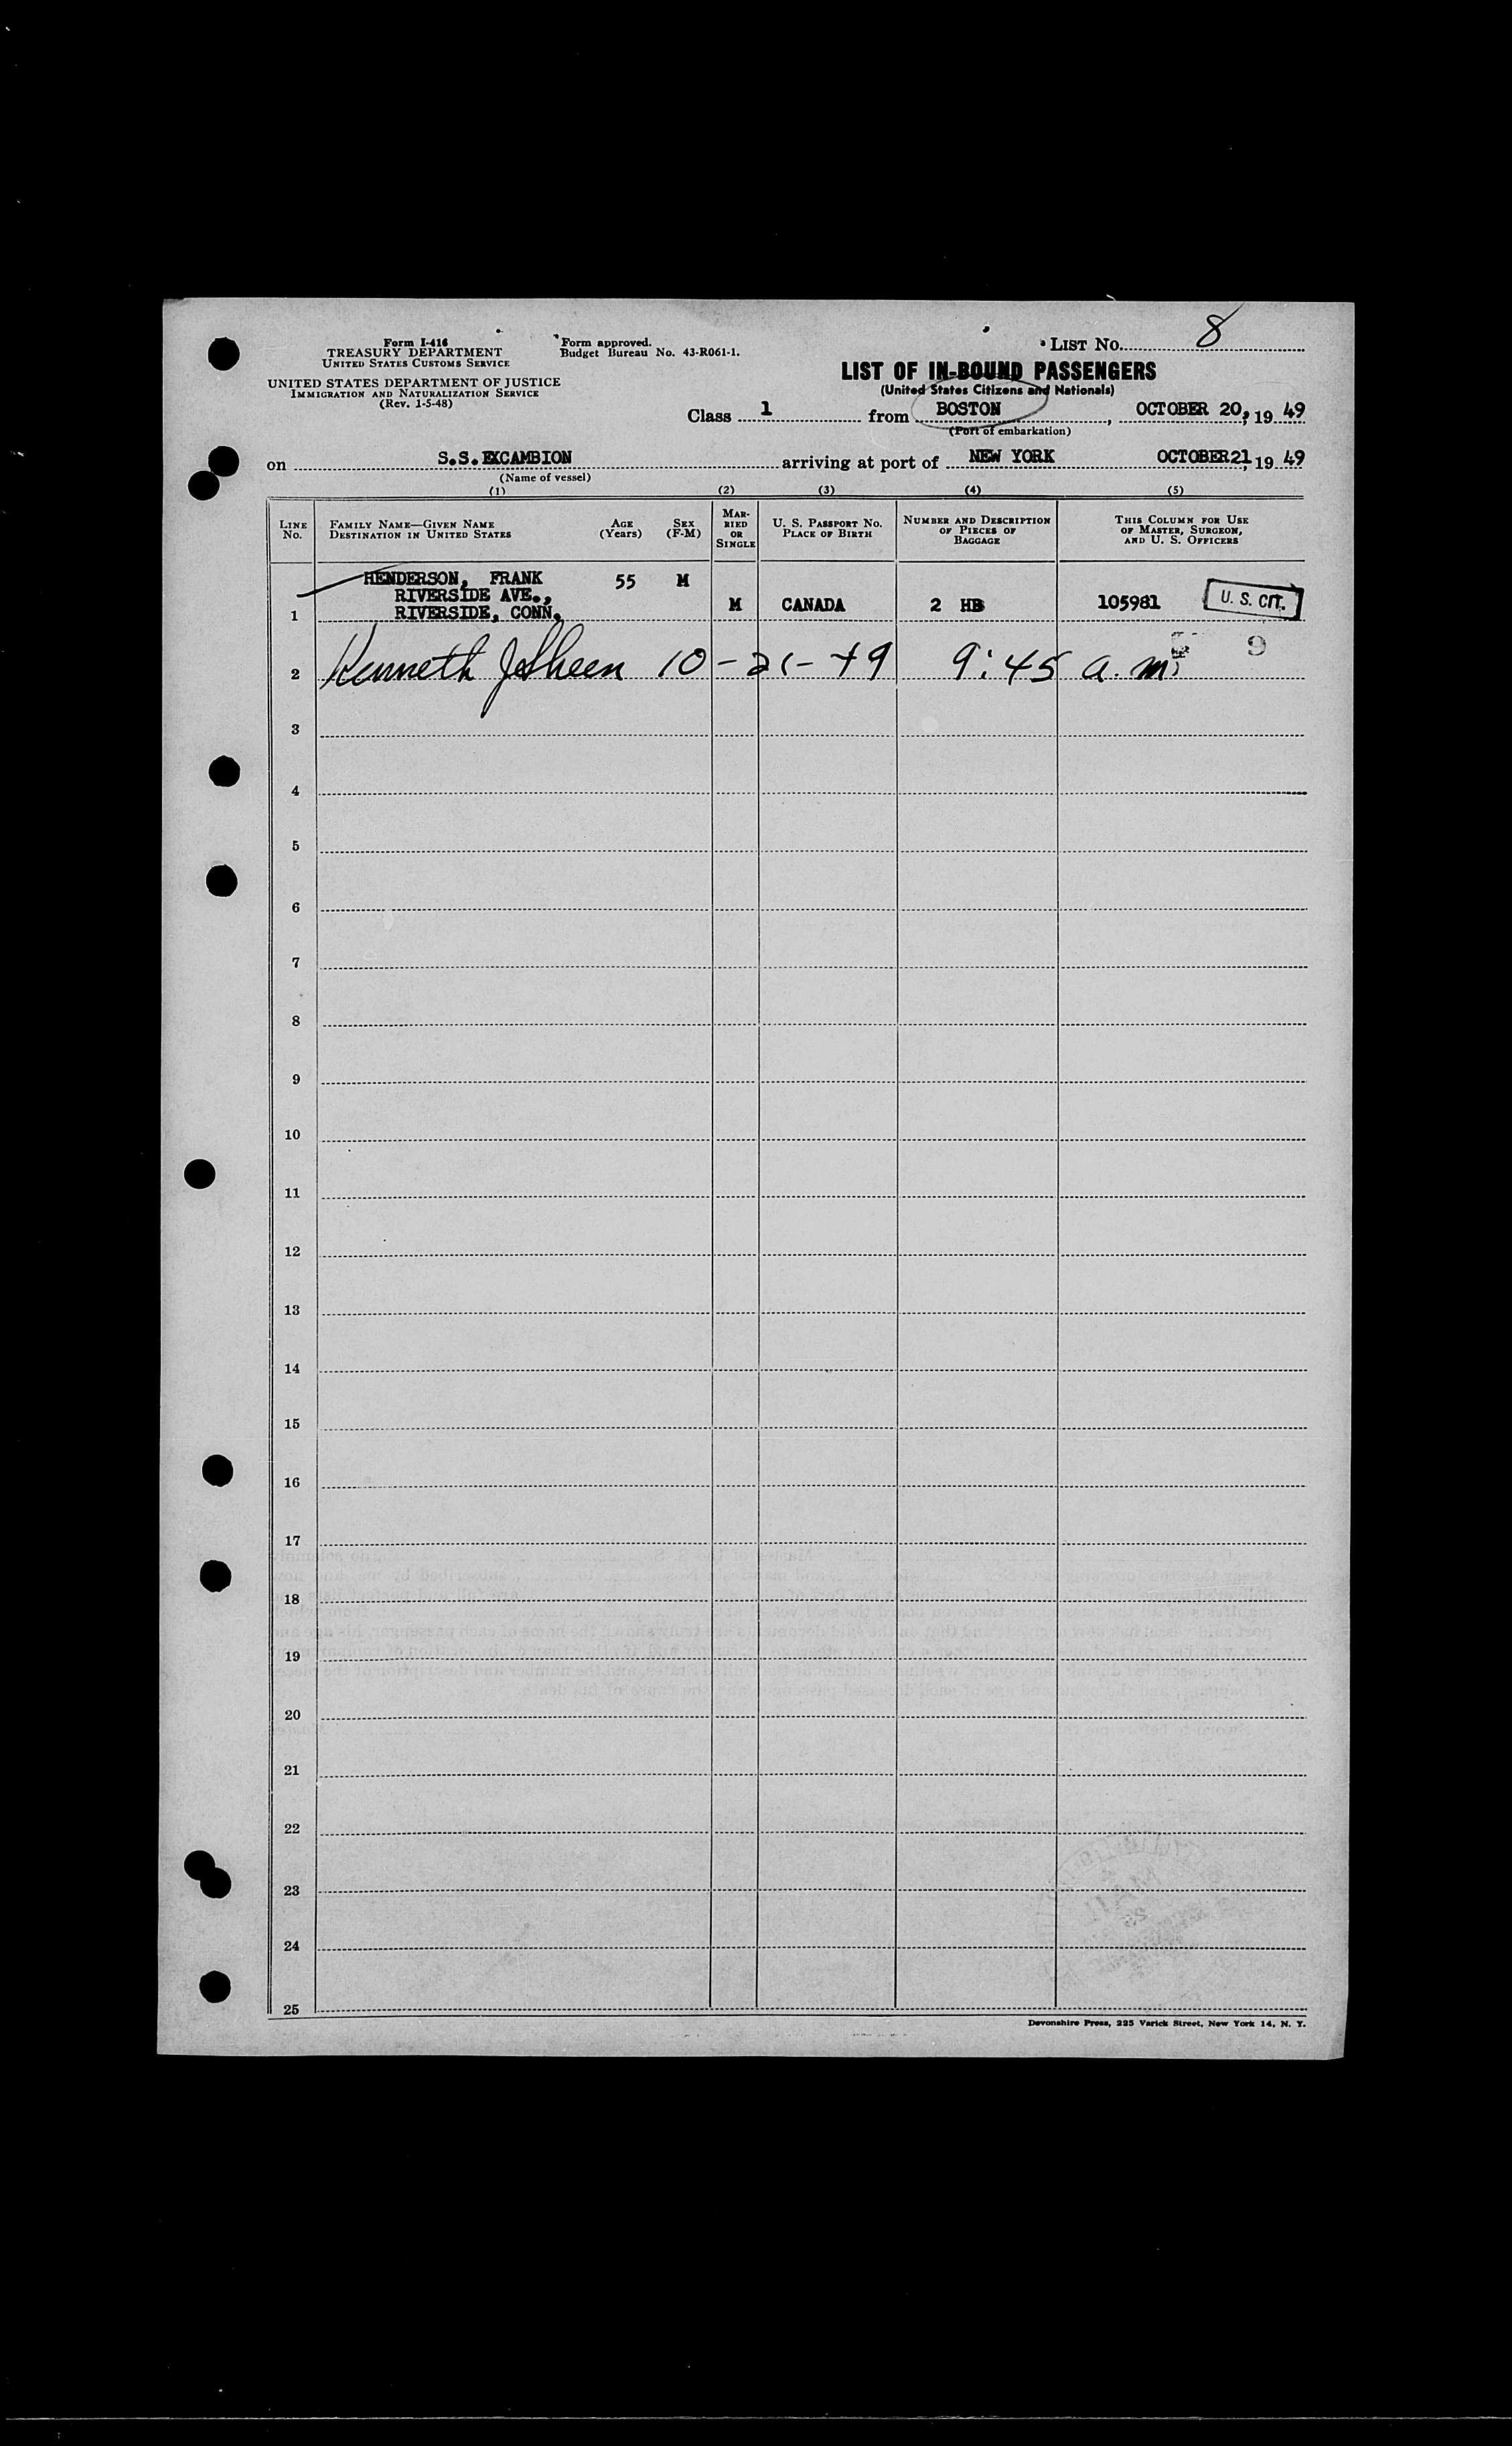 Form I-416
TREASURY DEPARTMENT
UNITED STATES CUSTOMS SERVICE
UNITED STATES DEPARTMENT OF JUSTICE
IMMIGRATION AND NATURALIZATION SERVICE
(Rev. 1-5-48)
Form approved.
Budget Bureau No. 43-R061-1.
LIST No. 8
LIST OF IN-BOUND PASSENGERS
(United States Citizens and Nationals)
Class 1 from BOSTON, OCTOBER 20, 1949
(Port of embarkation)
on S.S. EXCAMBION arriving at port of NEW YORK OCTOBER 21, 1949
(Name of vessel)
(1) (2) (3) (4) (5)
LINE No.
FAMILY NAME—GIVEN NAME
DESTINATION IN UNITED STATES
AGE (Years)
SEX (F-M)
MARRIED OR SINGLE
U. S. PASSPORT No.
PLACE OF BIRTH
NUMBER AND DESCRIPTION OF PIECES OF BAGGAGE
THIS COLUMN FOR USE OF MASTER, SURGEON, AND U. S. OFFICERS
HENDERSON, FRANK 55 M
RIVERSIDE AVE.,
1 RIVERSIDE, CONN. M CANADA 2 HB 105981 U. S. CIT.
9
2 Kenneth J Sheen 10-21-49 9:45 a.m.
3
4
5
6
7
8
9
10
11
12
13
14
15
16
17
18
19
20
21
22
23
24
25
Devonshire Press, 225 Varick Street, New York 14, N. Y.